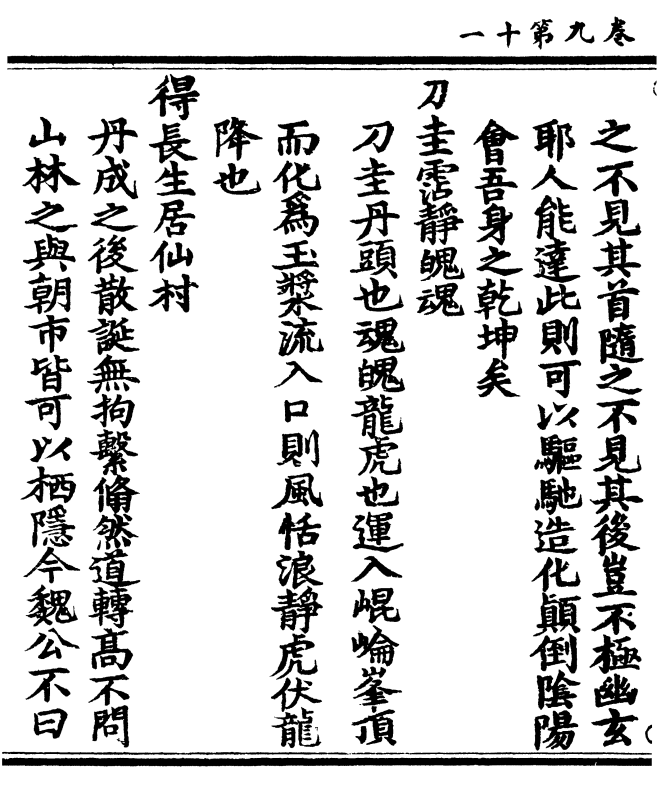 卷九第十一
之不見其首隨之不見其後豈不極幽玄
耶人能達此則可以驅馳造化顛倒陰陽
會吾身之乾坤矣
刀圭霑靜魄魂
刀圭丹頭也魂魄龍虎也運入崐崘峯頂
而化爲玉漿流入口則風恬浪靜虎伏龍
降也
得長生居仙村
丹成之後散誕無拘繫翛然道轉髙不問
山林之與朝市皆可以栖隱今魏公不曰